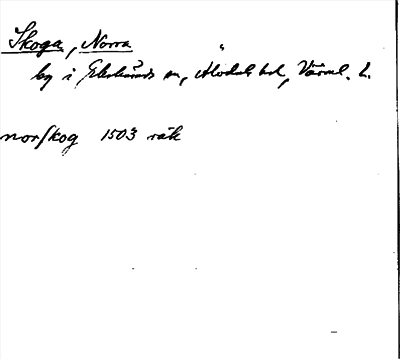 Skoga, Norra
by i Ekshärads sn, Älvdals hd, Värml. l.
norskog 1503 räk